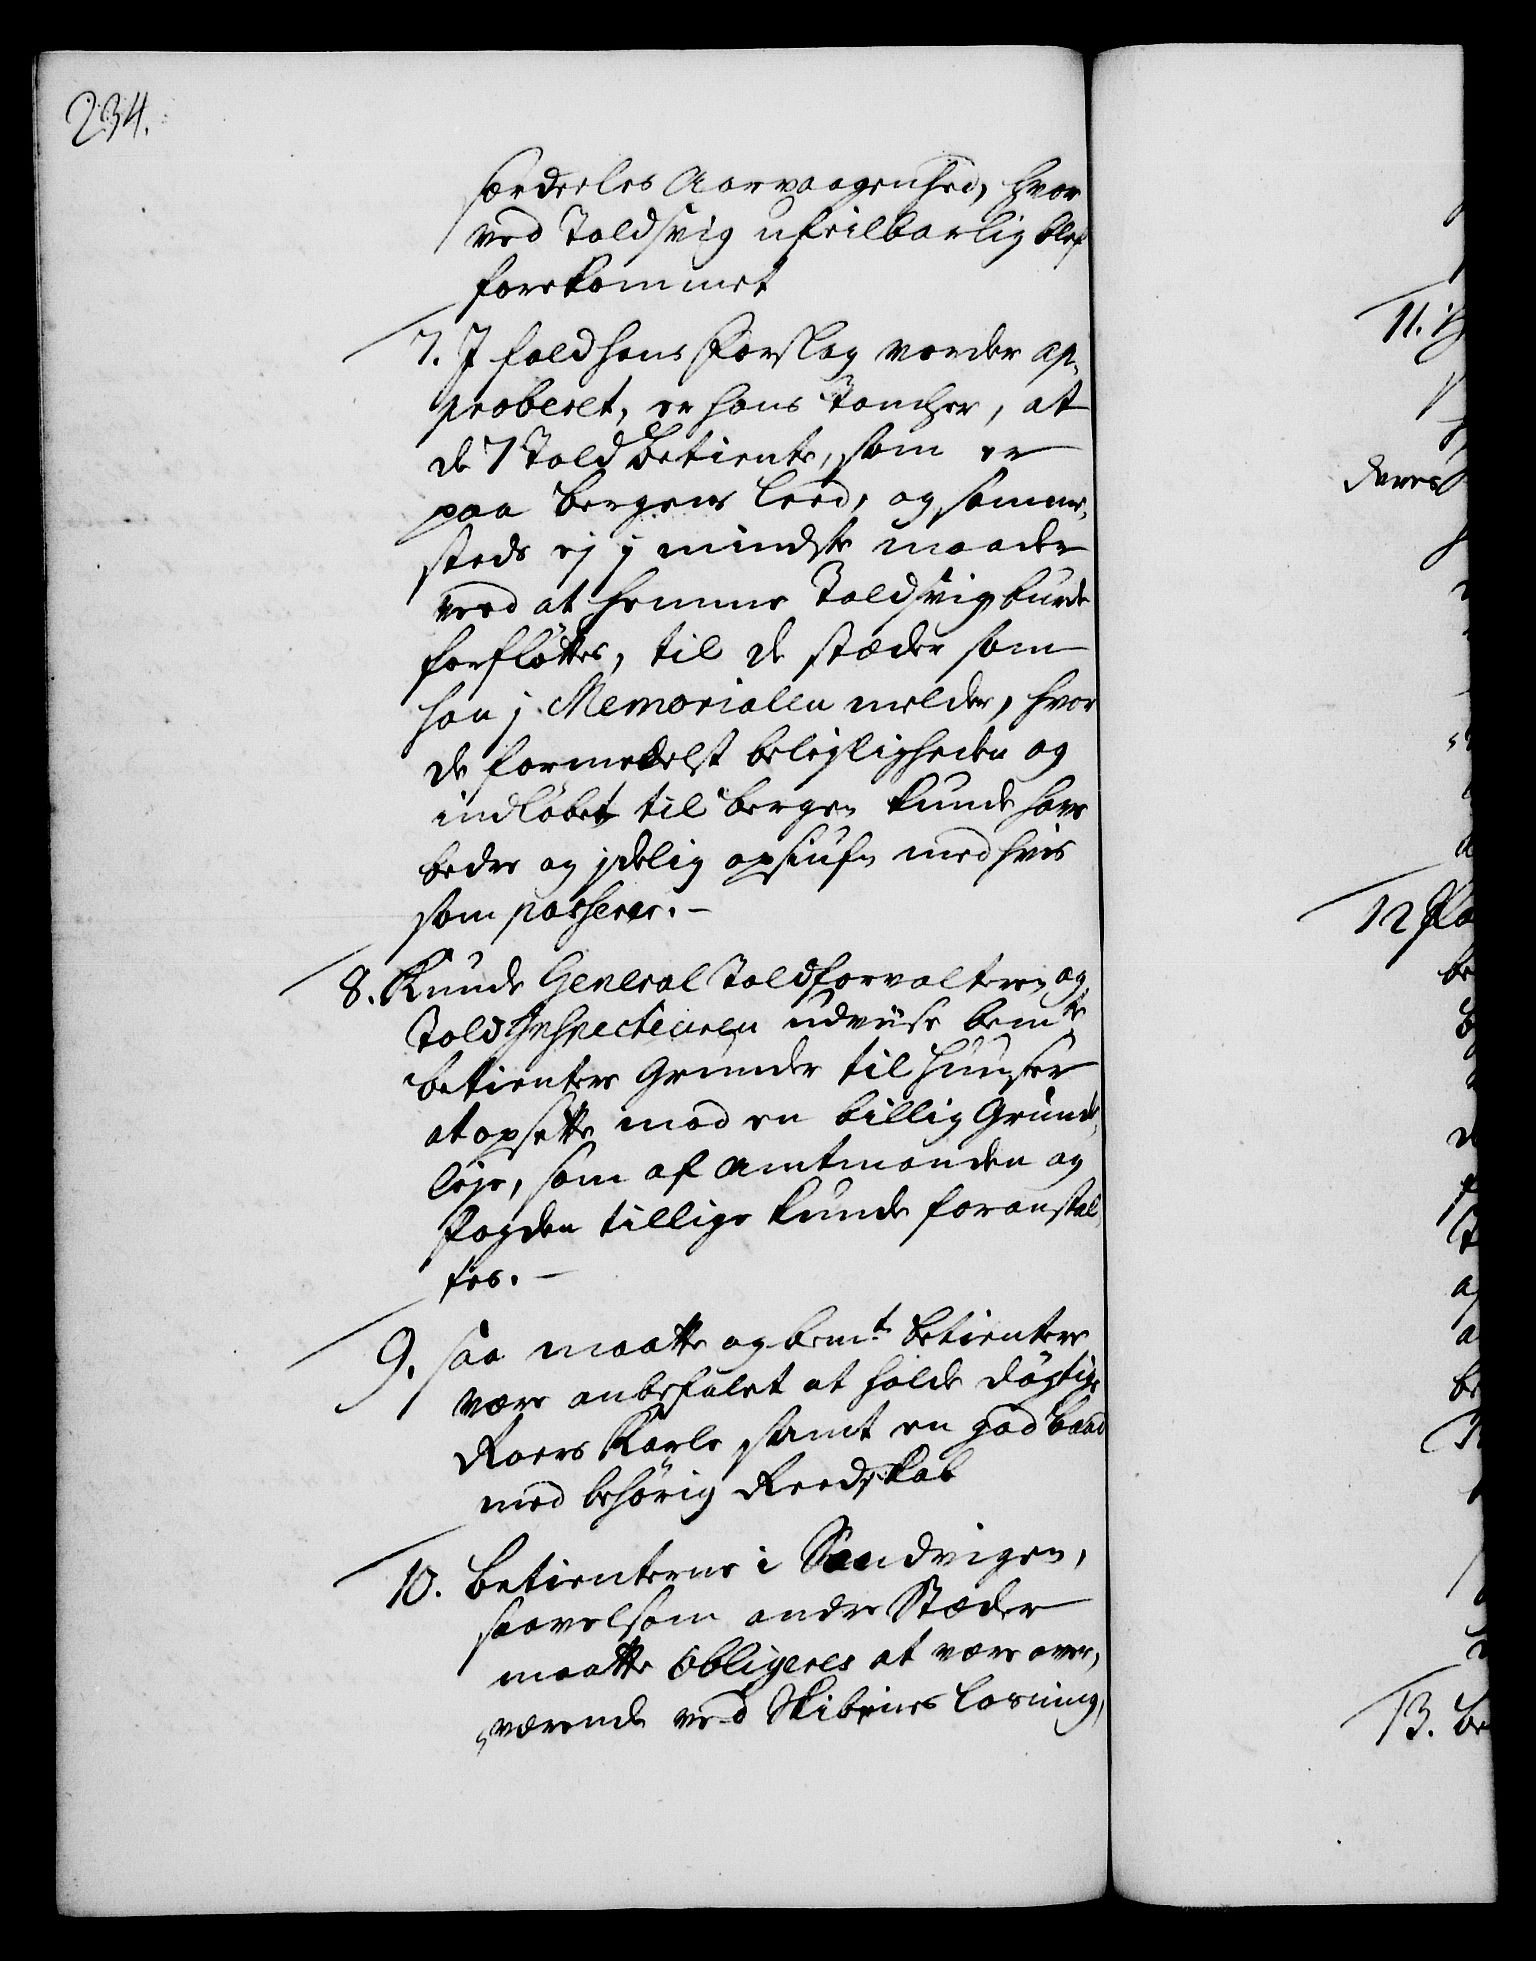 234.
særdeeles Aarvaagenhed, hvor
ved Toldsvig ufeilbarlig blef
forekommet
7. J fald hans Forslag vorder ap-
proberet, er hans Tancher, at
de 7 Told Betiente, som er
paa Bergens leed, og samme-
steds ej j mindste maader
veed at hemme Toldsvig burde
forfløttes, til de stæder som
han j Memorialen melder, hvor
de formedelst beleigligheden og
indløbet til Bergen kunde have
bedre og jdelig opsiufn med hvis
som passerer. -
8. Kunde General Toldforvalteren og
Told Inspecteuren udviise bemte
betientere Grunder til Huuser
at opsette mod en billig Grunde-
leje, som af Amtmanden og
Fogden tillige kunde foranstal-
tes. -
9. saa maatte og bemt. betientere
være anbefalet at holde døgtige
Roers Karle samt en god Baad
med behørig Reedskab
10. Betienterne i Sandvigen,
saavelsom andre Stæder
maatte obligeres at være over-
værende ved Skibenes losning,
11.
deres
12
13. Be